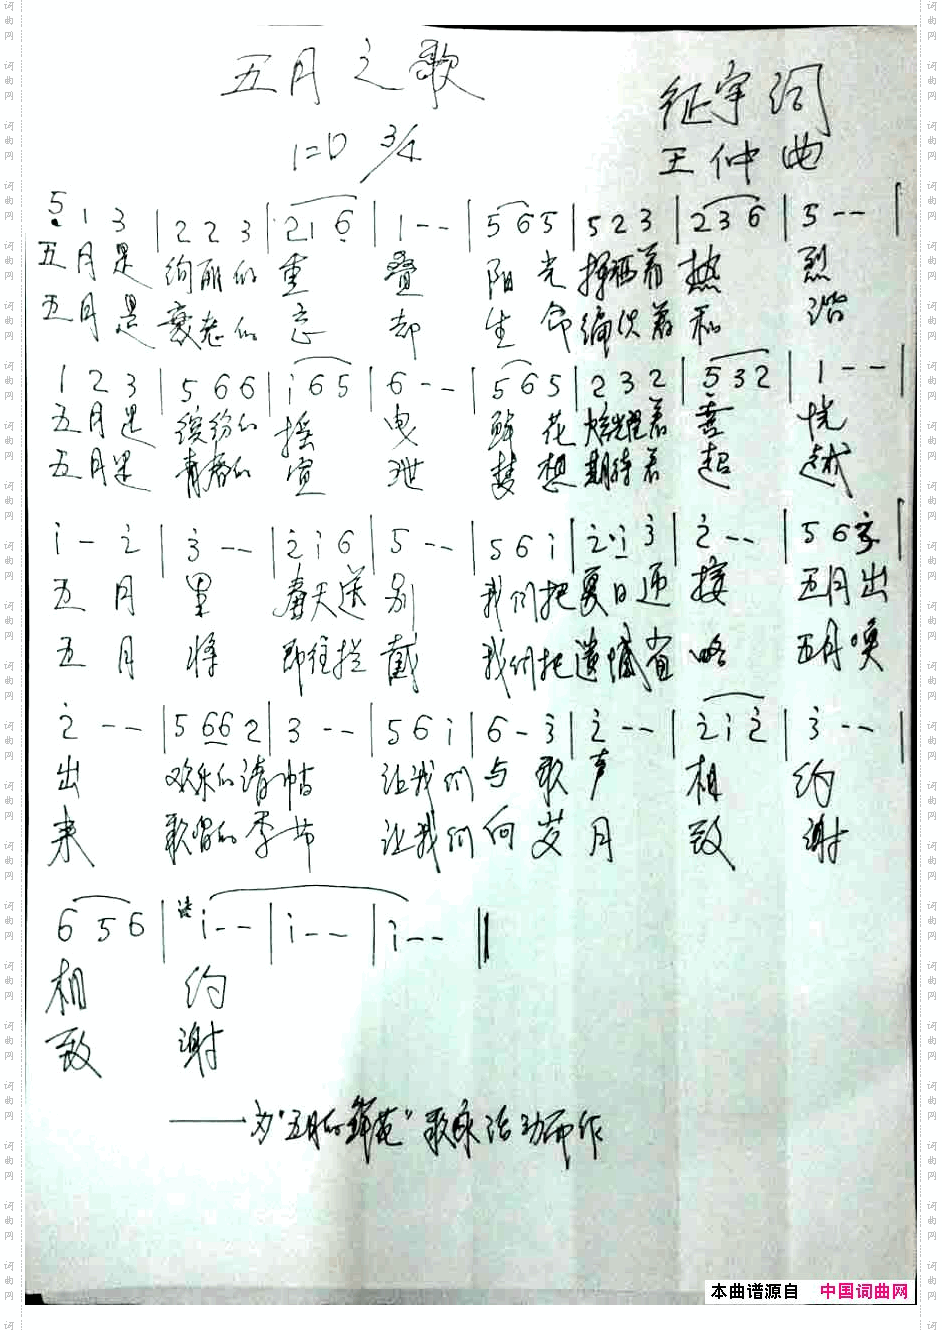 五月之歌
征宇 词
1=D 3/4
王仲 曲
5̣ 1 3 | 2 2 3 | 2 1 6̣ | 1 - - | 5 6 5 | 5 2 3 | 2 3 6 | 5 - - |
五月是 绚丽的 重 叠 阳 光 挥洒着 热 烈
五月是 衰老的 忘 却 生 命 编织着 和 谐
1 2 3 | 5 6 6 | i 6 5 | 6 - - | 5 6 5 | 2 3 2 | 5̣ 3 2 | 1 - - |
五月是 缤纷的 摇 曳 鲜 花 炫耀着 喜 悦
五月是 青春的 宣 泄 梦 想 期待着 超 越
i - 2̇ | 3̇ - - | 2̇ i 6 | 5 - - | 5 6 i | 2̇· i 3̇ | 2̇ - - | 5 6 3̇ |
五 月 里 春天送 别 我们把 夏日迎 接 五月出
五 月 将 即往拦 截 我们把 遗憾省 略 五月唤
2̇ - - | 5 6 6 2 | 3 - - | 5 6 i | 6 - 3̇ | 2̇ - - | 2̇ i 2̇ | 3̇ - - |
出 欢乐的请帖 让我们 与 歌 声 相 约
来 歌唱的季节 让我们 向 岁 月 致 谢
6 5 6 | i - - | i - - | i - - ‖
相 约
致 谢
——为"五月的鲜花"歌咏活动而作
本曲谱源自 中国词曲网